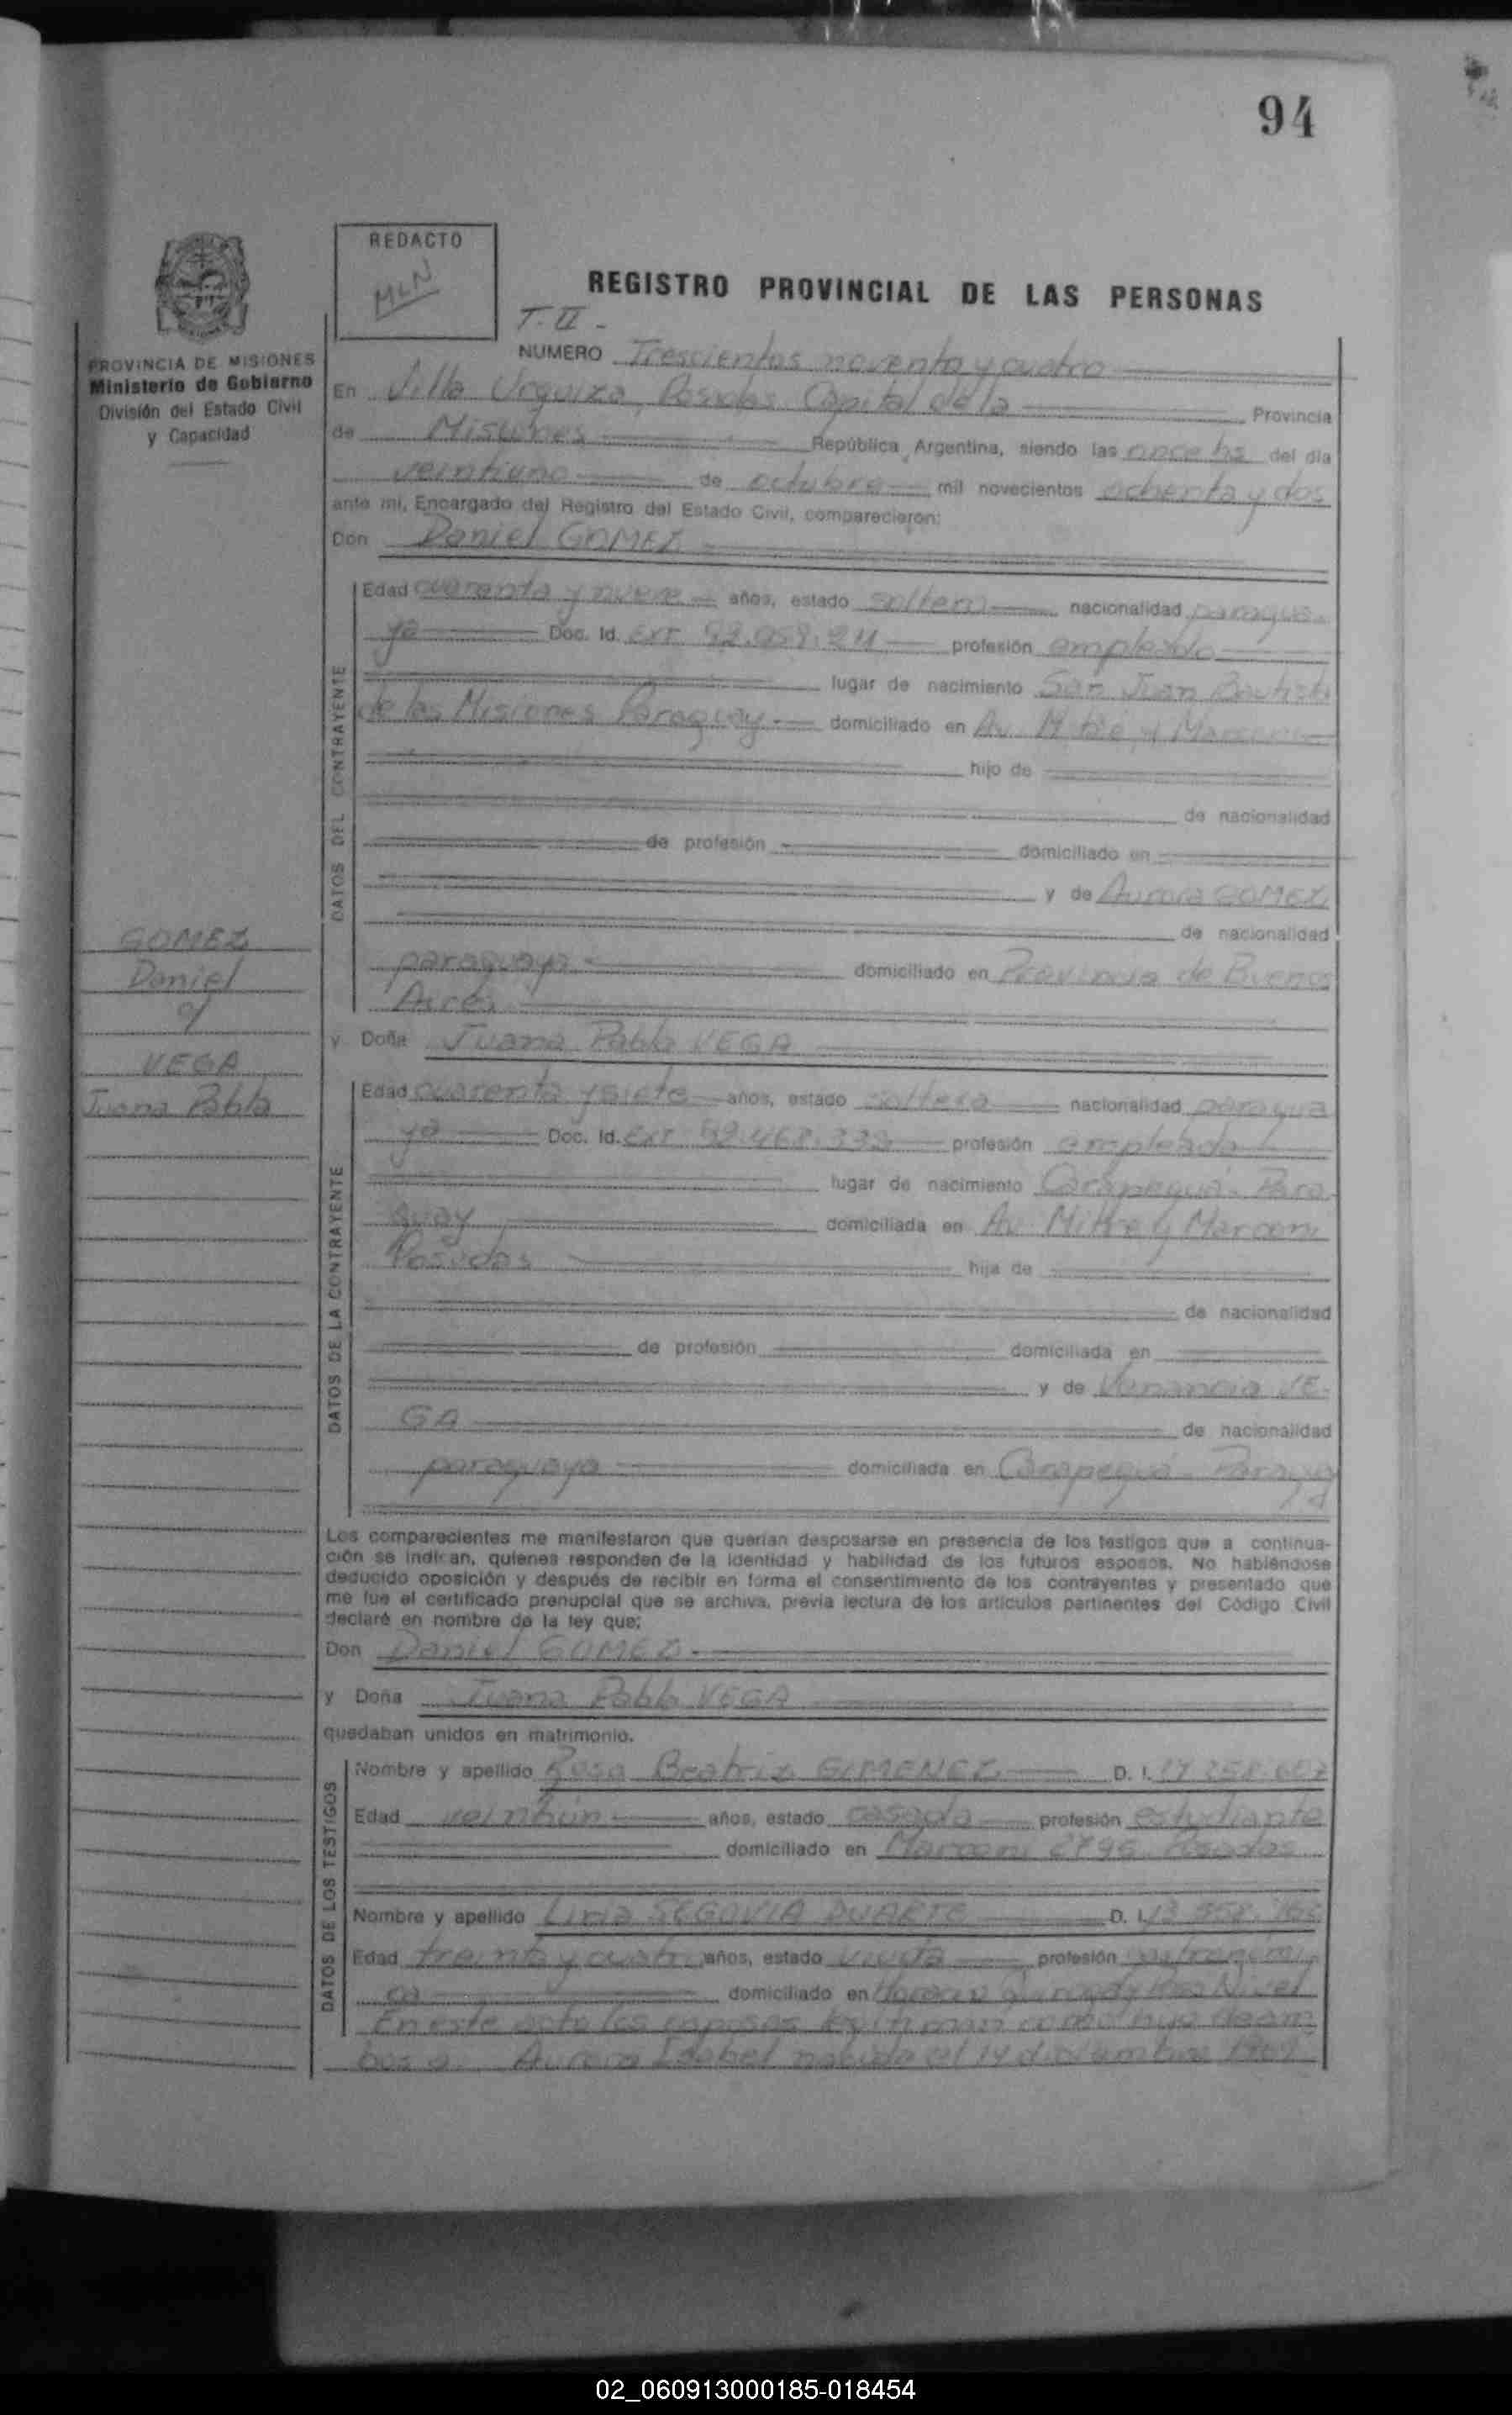 94
REDACTO
MLN
REGISTRO PROVINCIAL DE LAS PERSONAS
T. II -
NUMERO Trescientos noventa y cuatro
PROVINCIA DE MISIONES
Ministerio de Gobierno
División del Estado Civil
y Capacidad
En Villa Urquiza, Posadas Capital de la Provincia
de Misiones República Argentina, siendo las once hs del día
veintiuno de octubre mil novecientos ochenta y dos
ante mi, Encargado del Registro del Estado Civil, comparecieron:
Don Daniel GOMEZ
DATOS DEL CONTRAYENTE
Edad cuarenta y nueve años, estado soltero nacionalidad paragua-
ya Doc. Id. Ext profesión empleado
lugar de nacimiento San Juan Bautista
de las Misiones Paraguay domiciliado en Av. Mitre y Marconi
hijo de
de nacionalidad
de profesión domiciliado en
y de Aurora GOMEZ
de nacionalidad
paraguaya domiciliado en Provincia de Buenos
Aires
GOMEZ
Daniel
c/
VEGA
Juana Pabla
y Doña Juana Pabla VEGA
DATOS DE LA CONTRAYENTE
Edad cuarenta y siete años, estado soltera nacionalidad paragua
ya Doc. Id. Ext profesión empleada
lugar de nacimiento Carapeguá - Para
guay domiciliada en Av. Mitre y Marconi
Posadas hija de
de nacionalidad
de profesión domiciliada en
y de Venancia VE-
GA de nacionalidad
paraguaya domiciliada en Carapegua - Paraguay
Los comparecientes me manifestaron que querían desposarse en presencia de los testigos que a continua-
ción se indican, quienes responden de la identidad y habilidad de los futuros esposos. No habiéndose
deducido oposición y después de recibir en forma el consentimiento de los contrayentes y presentado que
me fue el certificado prenupcial que se archiva, previa lectura de los artículos pertinentes del Código Civil
declaré en nombre de la ley que:
Don Daniel GOMEZ
y Doña Juana Pabla VEGA
quedaban unidos en matrimonio.
DATOS DE LOS TESTIGOS
Nombre y apellido Rosa Beatriz GIMENEZ D. I.
Edad veintiún años, estado casada profesión estudiante
domiciliado en Marconi 2796 Posadas
Nombre y apellido Liria SEGOVIA DUARTE D. I.
Edad treinta y cuatro años, estado viuda profesión
domiciliado en
En este acto los esposos legitiman como hija de am
bos a Aurora Isabel nacida el 14 diciembre
02_060913000185-018454